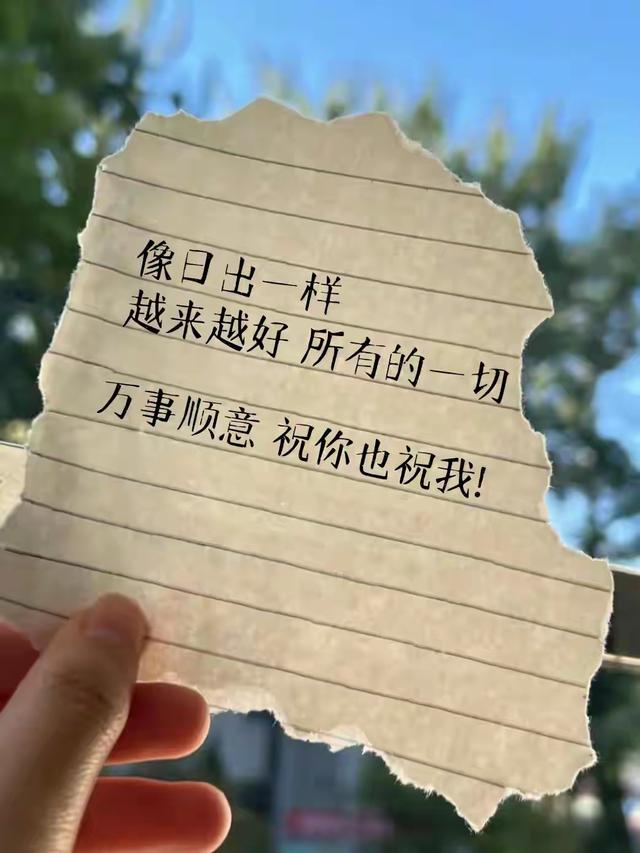 像日出一样
越来越好 所有的一切
万事顺意 祝你也祝我!